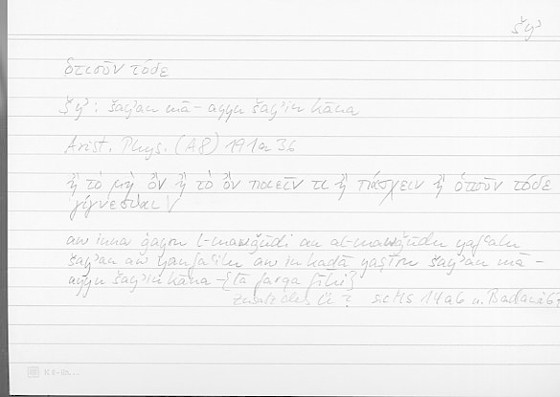 šyʾ
ὁτιοῦν τόδε
šyʾ : šayʾan mā – ayyu šayʾin kāna
Arist. Phys. (A8) 191a 36
ἢ τὸ μὴ ὂν ἢ τὸ ὂν ποιεῖν τι ἢ πάσχειν ἢ ὁτιοῦν τόδε
γίγνεσθαι
aw inna ġayra l-mawǧūdi au al-mawǧūdu yafʿalu
šayʾan aw yanfaʿilu aw inkadā šayʾan mā –
ayyu šayʾin kāna – {lā farqa fīhi}
? sic MS 14a6 u. Badawī 67